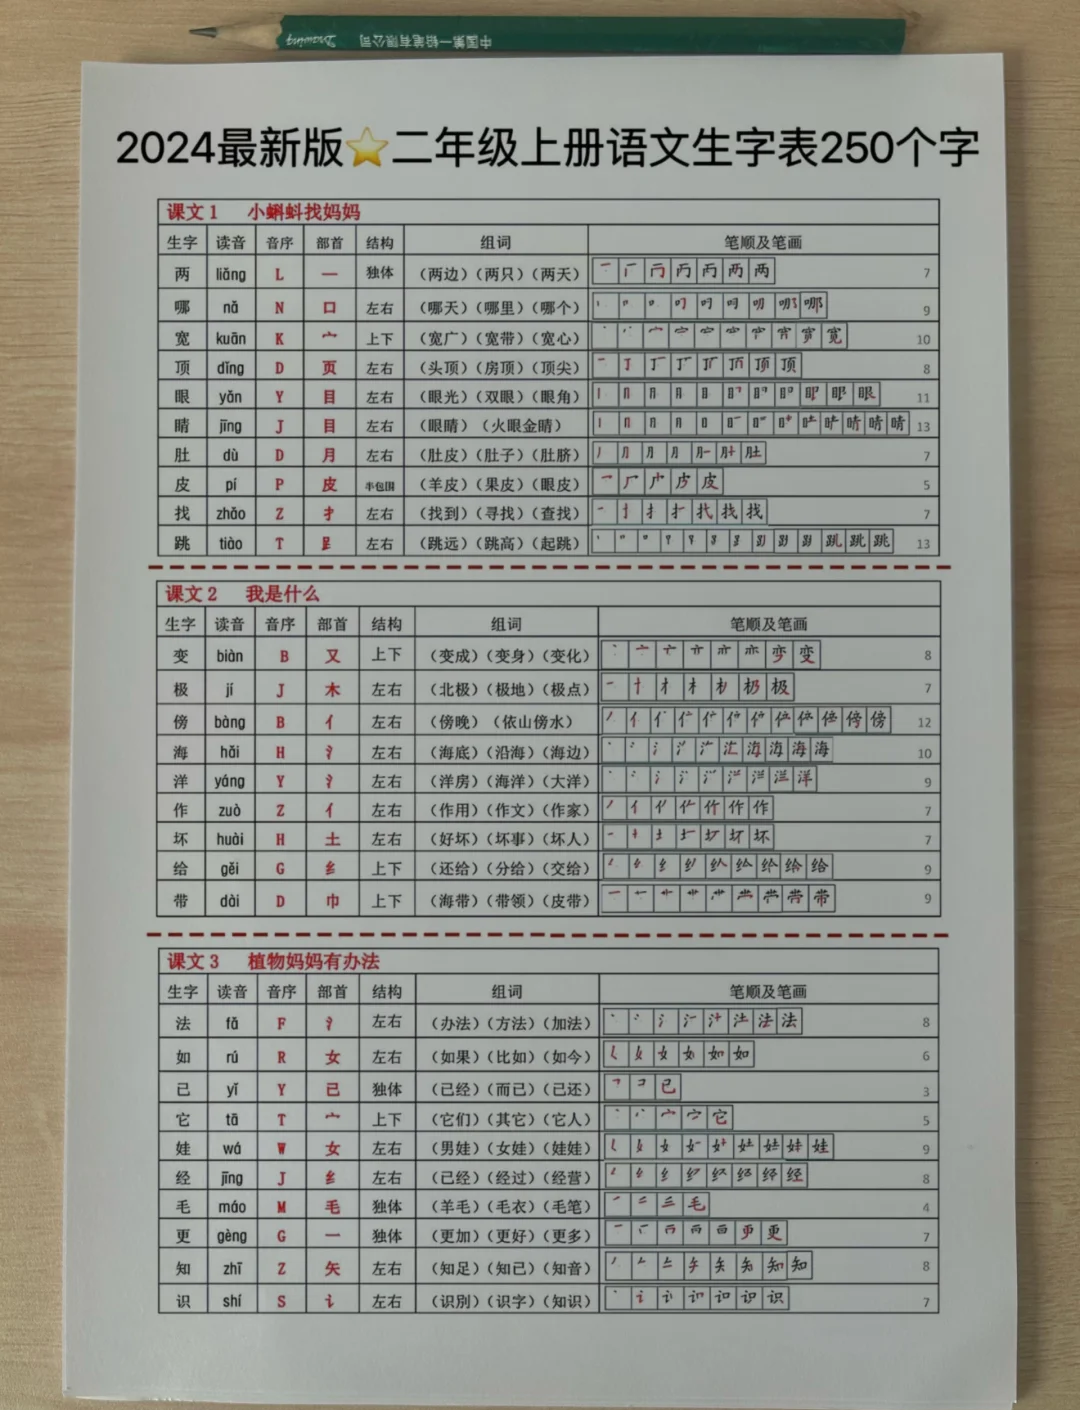 Drawing 中国第一铅笔有限公司
2024最新版⭐二年级上册语文生字表250个字
课文1 小蝌蚪找妈妈
生字 读音 音序 部首 结构 组词 笔顺及笔画
两 liǎng L 一 独体 （两边）（两只）（两天） 7
哪 nǎ N 口 左右 （哪天）（哪里）（哪个） 9
宽 kuān K 宀 上下 （宽广）（宽带）（宽心） 10
顶 dǐng D 页 左右 （头顶）（房顶）（顶尖） 8
眼 yǎn Y 目 左右 （眼光）（双眼）（眼角） 11
睛 jīng J 目 左右 （眼睛）（火眼金睛） 13
肚 dù D 月 左右 （肚皮）（肚子）（肚脐） 7
皮 pí P 皮 半包围 （羊皮）（果皮）（眼皮） 5
找 zhǎo Z 扌 左右 （找到）（寻找）（查找） 7
跳 tiào T 𧾷 左右 （跳远）（跳高）（起跳） 13
课文2 我是什么
生字 读音 音序 部首 结构 组词 笔顺及笔画
变 biàn B 又 上下 （变成）（变身）（变化） 8
极 jí J 木 左右 （北极）（极地）（极点） 7
傍 bàng B 亻 左右 （傍晚）（依山傍水） 12
海 hǎi H 氵 左右 （海底）（沿海）（海边） 10
洋 yáng Y 氵 左右 （洋房）（海洋）（大洋） 9
作 zuò Z 亻 左右 （作用）（作文）（作家） 7
坏 huài H 土 左右 （好坏）（坏事）（坏人） 7
给 gěi G 纟 上下 （还给）（分给）（交给） 9
带 dài D 巾 上下 （海带）（带领）（皮带） 9
课文3 植物妈妈有办法
生字 读音 音序 部首 结构 组词 笔顺及笔画
法 fǎ F 氵 左右 （办法）（方法）（加法） 8
如 rú R 女 左右 （如果）（比如）（如今） 6
已 yǐ Y 已 独体 （已经）（而已）（已还） 3
它 tā T 宀 上下 （它们）（其它）（它人） 5
娃 wá W 女 左右 （男娃）（女娃）（娃娃） 9
经 jīng J 纟 左右 （已经）（经过）（经营） 8
毛 máo M 毛 独体 （羊毛）（毛衣）（毛笔） 4
更 gèng G 一 独体 （更加）（更好）（更多） 7
知 zhī Z 矢 左右 （知足）（知己）（知音） 8
识 shí S 讠 左右 （识别）（识字）（知识） 7